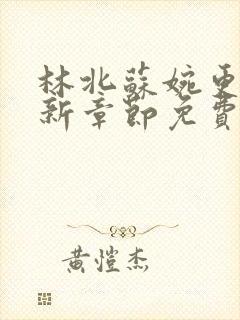 林北蘇婉更
新章節免費
黃愷杰